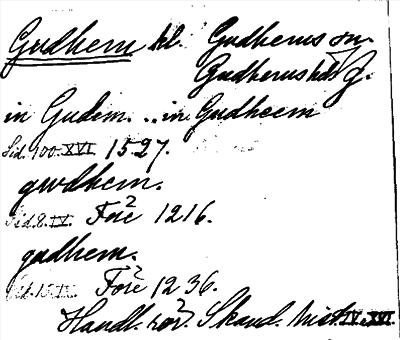 Gudhem kl. Gudhems sn.
Gudhems hd. V. g.
in Gudem. .. in Gudheem
Sid. 100. XVI 1527.
gwdhem.
Sid. 8. IV. Före 1216.
gudhem.
Sid. 15. IV. Före 1236.
Handl. rör. Skand. hist. IV. XVI.